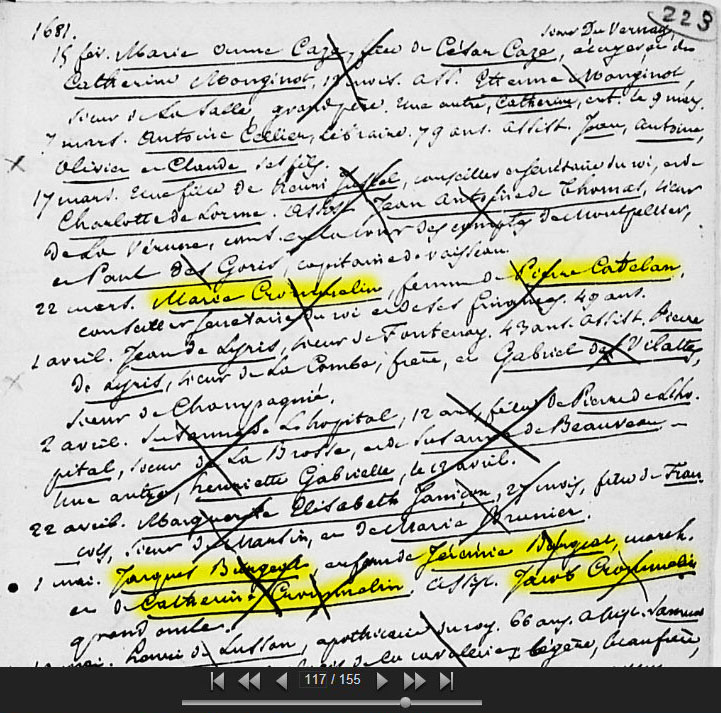 223
1681.
Sieur Du Vernay,
15 fév. Marie Anne Caze, fille de César Caze, écuyer, et de
Catherine Monginot, 19 mois. Ass. Etienne Monginot,
sieur de La Salle, grand père. Une autre, Catherine, ent. le 9 mars.
7 mars. Antoine Cellier, libraire. 79 ans. Assist. Jean, Antoine,
Olivier et Claude ses fils.
17 mars. Une fille de Henri Justel, conseiller et secrétaire du roi, et de
Charlotte de Lorme. Assist. Jean Antoine de Thomas, sieur
de La Vérune, cons. en la cour des comptes de Montpellier,
et Paul Des Goris, capitaine de vaisseau.
22 mars. Marie Crommelin, femme de Pierre Catelan,
conseiller secrétaire du roi et de ses finances. 49 ans.
1 avril. Jean de Lyris, sieur de Fontenay. 43 ans. Assist. Pierre
de Lyris, sieur de La Combe, frère, et Gabriel de Vilattes,
sieur de Champagnié.
2 avril. Susanne de Lhopital, 12 ans, fille de Pierre de Lho-
pital, sieur de La Brosse, et de Susanne de Beauveau.
Une autre, Henriette Gabrielle, le 12 avril.
22 avril. Marguerite Elisabeth Janiçon, 27 mois, fille de Fran-
çois, sieur de Marsin, et de Marie Brunier.
1 mai. Jacques Bargeat, enfant de Jérémie Bargeat, march.
et de Catherine Crommelin. Assist. Jacob Crommelin
grand oncle.
mai. Louis de Lussan, apothicaire du roy. 66 ans. Assist. Samuel
de la cavalerie légère, beaufrère,
117 / 155